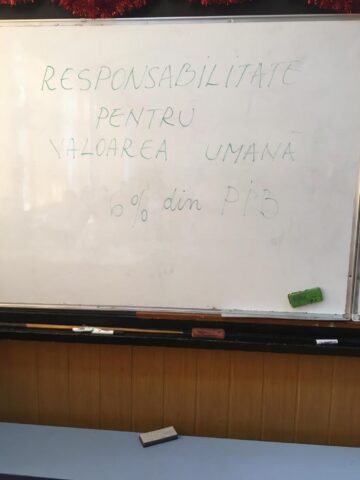 RESPONSABILITATE
PENTRU
VALOAREA UMANĂ
6% din PIB